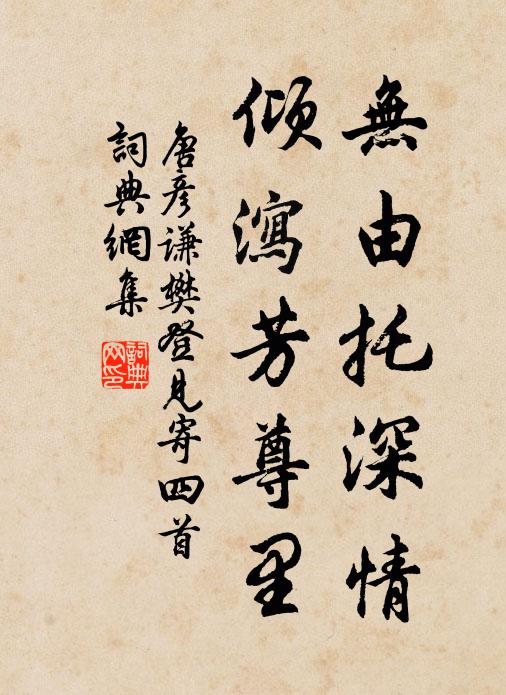 無由托深情
傾瀉芳尊里
唐彥谦樊登見寄四首
詞典網集
詞典
网印